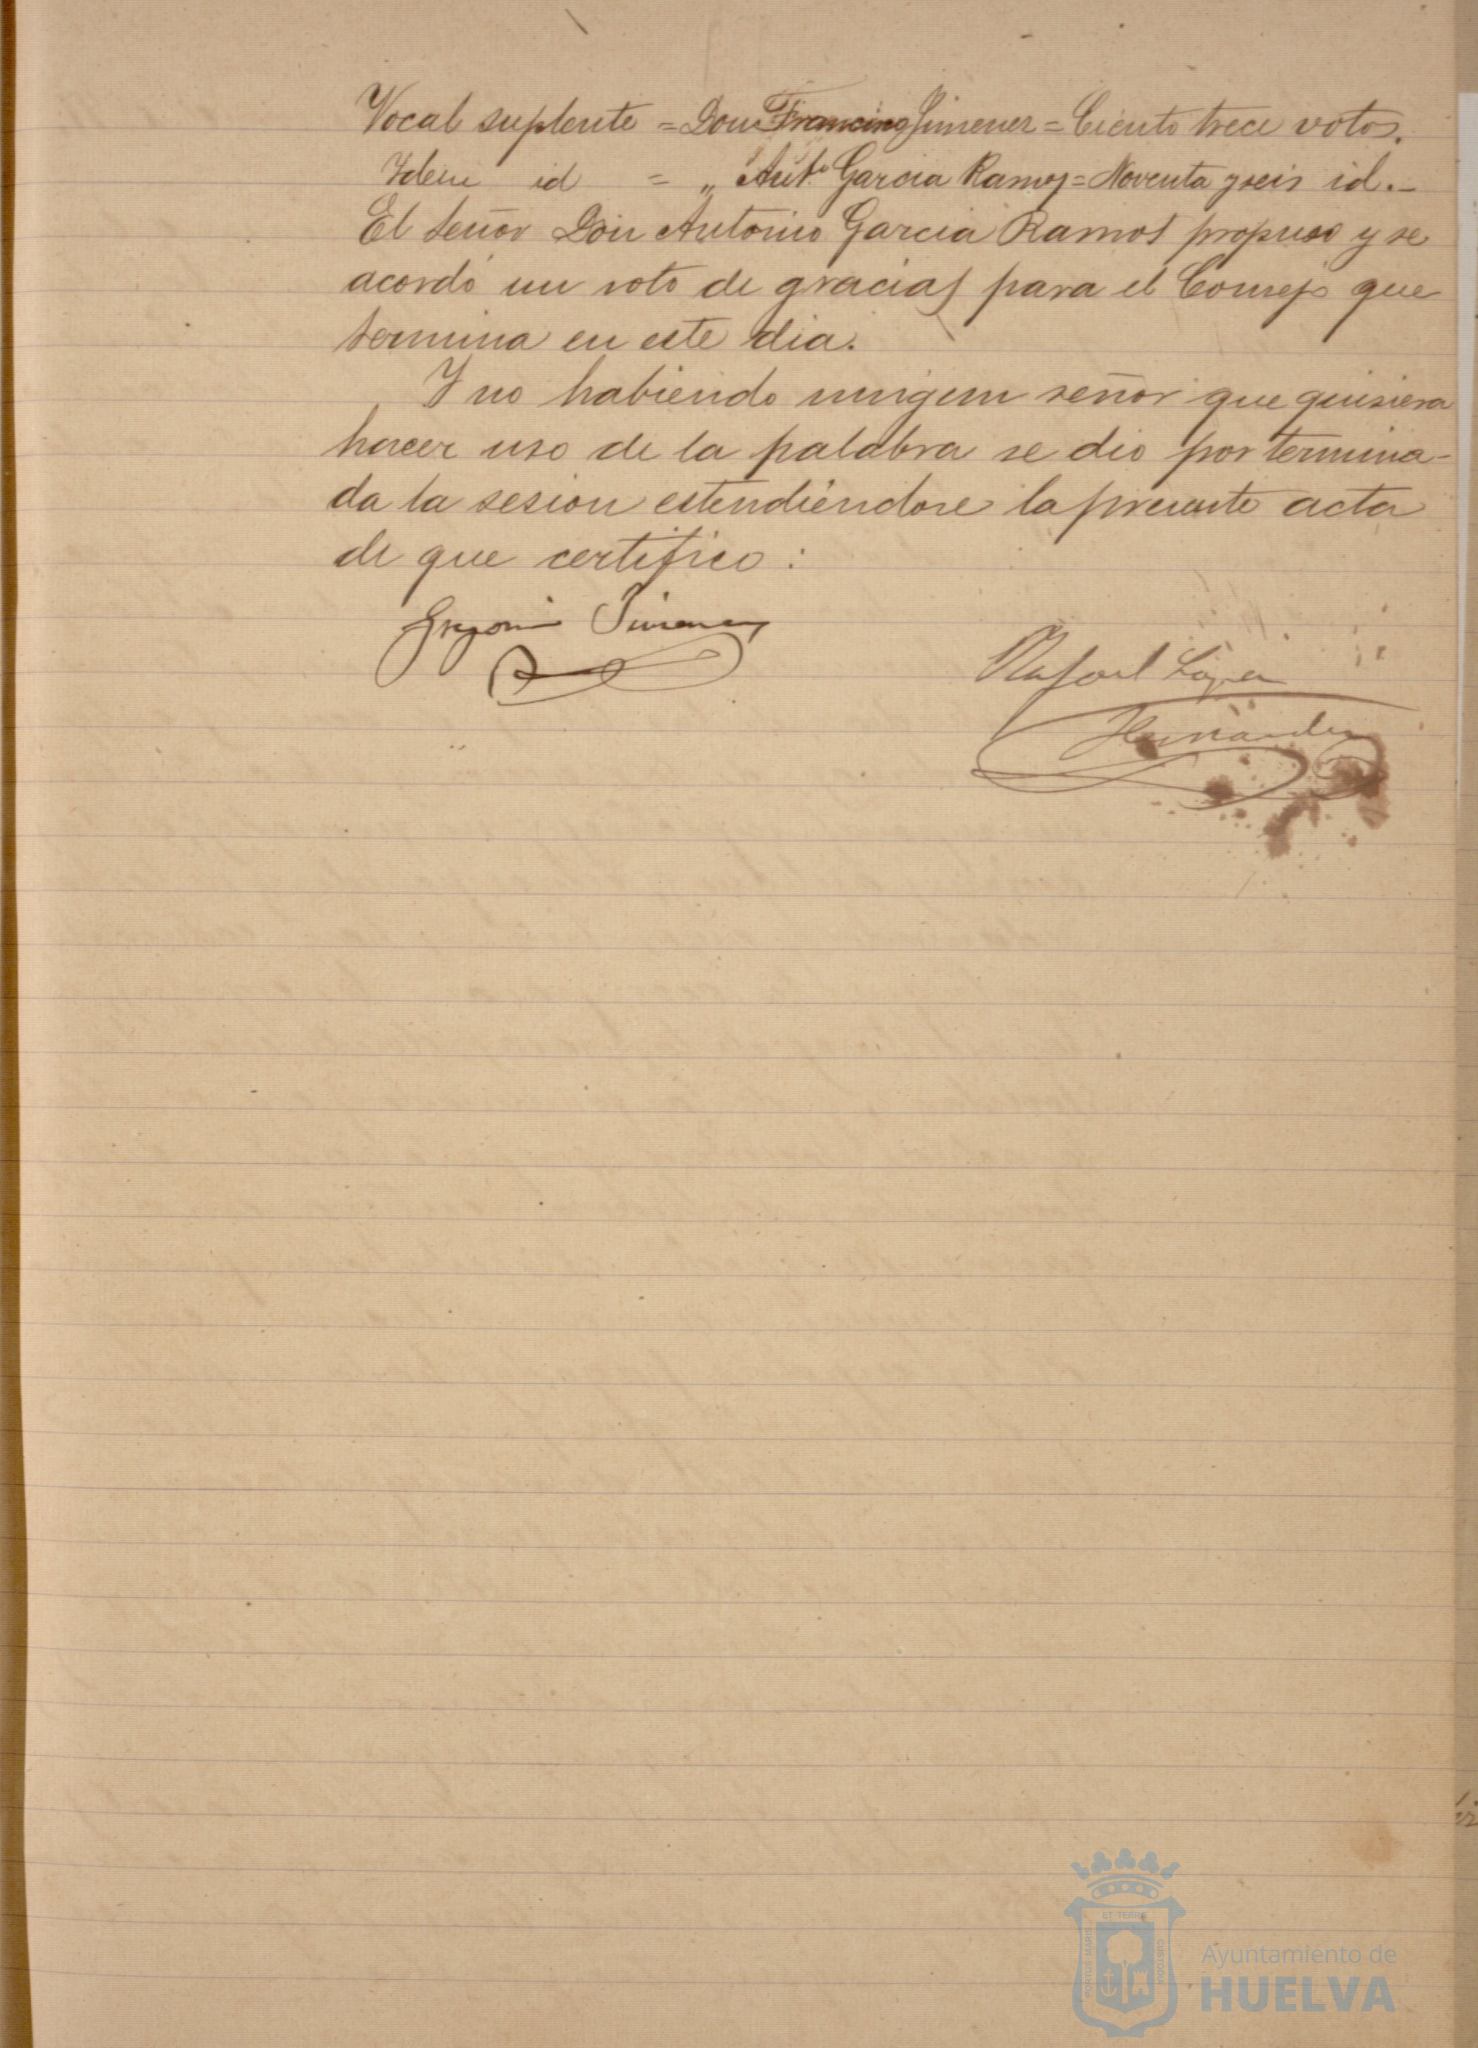 Vocal suplente = Don Francisco Jimenez = Ciento trece votos.
Idem id = „ Antº Garcia Ramos = Noventa y seis id. –
El señor Don Antonio Garcia Ramos propuso y se
acordó un voto de gracias para el Consejo que
termina en este dia.
Y no habiendo ningun señor que quisiera
hacer uso de la palabra se dio por termina-
da la sesion estendiéndose la presente acta
de que certifico:
Gregorio Jimenez
Rafael Lopez
Hernandez
ET TERRÆ
PORTUS MARIS
CUSTODIA
Ayuntamiento de
HUELVA